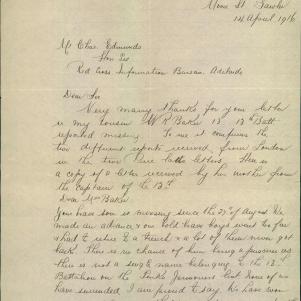 Moore St. Gawler
14 April 1916
Mr Chas. Edmunds
Hon Sec
Red Cross Information Bureau. Adelaide
Dear Sir
Very many thanks for your letter
re my cousin W R Baker 13 13th Batt
reported missing. To me it confirms the
two different reports received, from London
in the two letters. Here is
a copy of a letter received by her mother from
the Captain of the 13th
Dear Mrs Baker
Your dear son is missing since the 27th of August. We
made an advance & our bold boys went too far
& had to retire to a trench & a lot of them never got
back. There is no chance of him being a prisoner as
there is not a single name belonging to the 13th
Battalion on the Turks Prisoners list. None of us
have surrended, I am proud to say. We have won